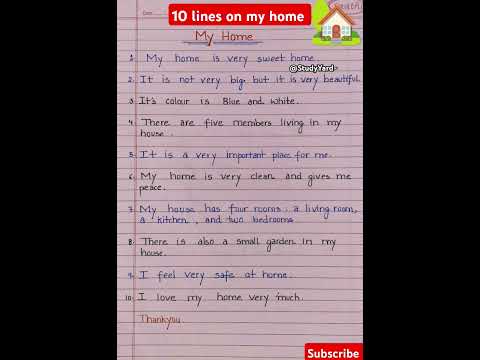 10 lines on my home
Date
My Home
1. My home is very sweet home.
@StudyYard-
2. It is not very big but it is very beautiful.
3. It's colour is Blue and white.
4. There are five members living in my
house.
5. It is a very important place for me.
6. My home is very clean and gives me
peace.
7. My house has four rooms: a living room,
a kitchen, and two bedrooms
8. There is also a small garden in my
house.
9. I feel very safe at home.
10. I love my home very much.
Thankyou
Subscribe